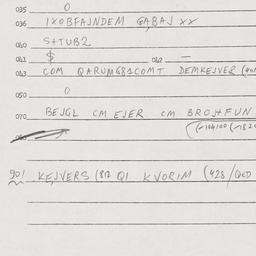 035 0
036 IXOBFAJNDEM GABAJ XX
040 S+TUB2
041 $ 042 —
043 COM QARUMG81COMT DEMKEJVER
050 0
070 BEJGL CM EJER CM BROJ+FUN
901 KEJVERS (812 QI KVORIM (428/QCD